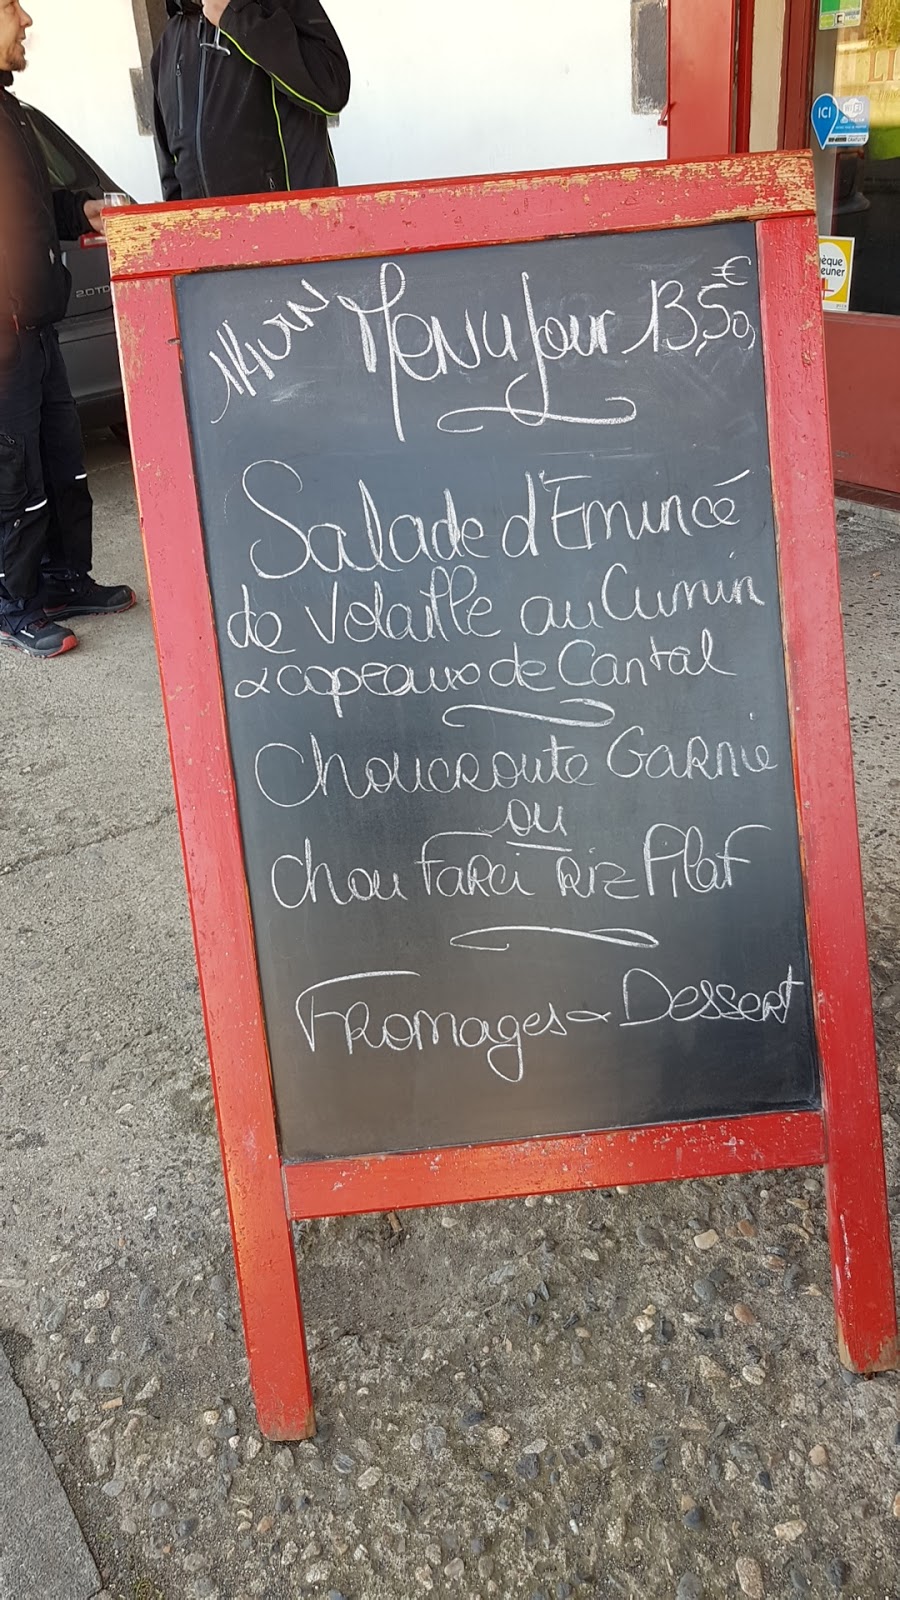 1/4 vin Menu Jour 13,50 €
Salade d'Emincé
de Volaille au Cumin
& copeaux de Cantal
Choucroute Garnie
ou
Chou Farci Riz Pilaf
Fromages & Dessert
ICI
WiFi
2.0 TD